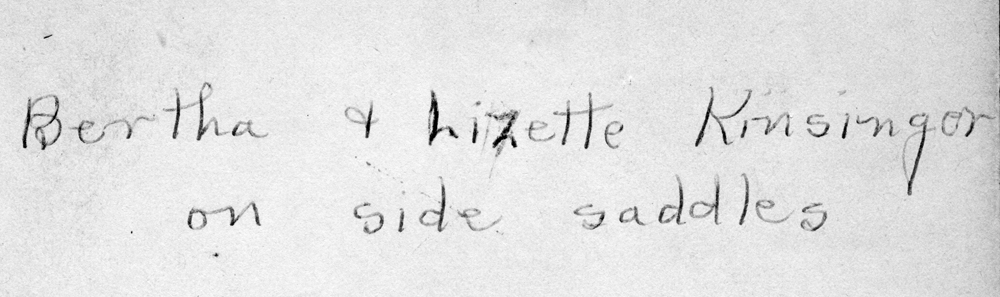 Bertha & Lizette Kinsingor
on side saddles